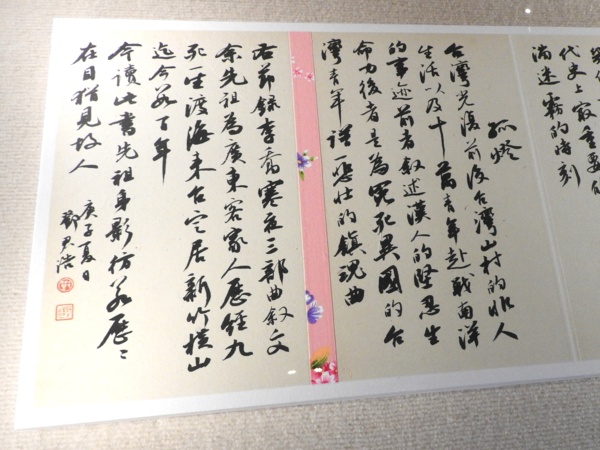 代史上最重要的
滿迷霧的時刻
孤燈
台灣光復前後台灣山村的非人
生活以及十萬青年赴戰南洋
的事迹前者叙述漢人的堅忍生
命力後者是為冤死異國的台
灣青年譜一悲壯的鎮魂曲
右節錄李喬寒夜三部曲叙文
余先祖為廣東客家人歷經九
死一生渡海來台定居新竹橫山
迄今若百年
今讀此書先祖身影彷若歷〻
在目猶見故人
庚子夏日
鄧君浩